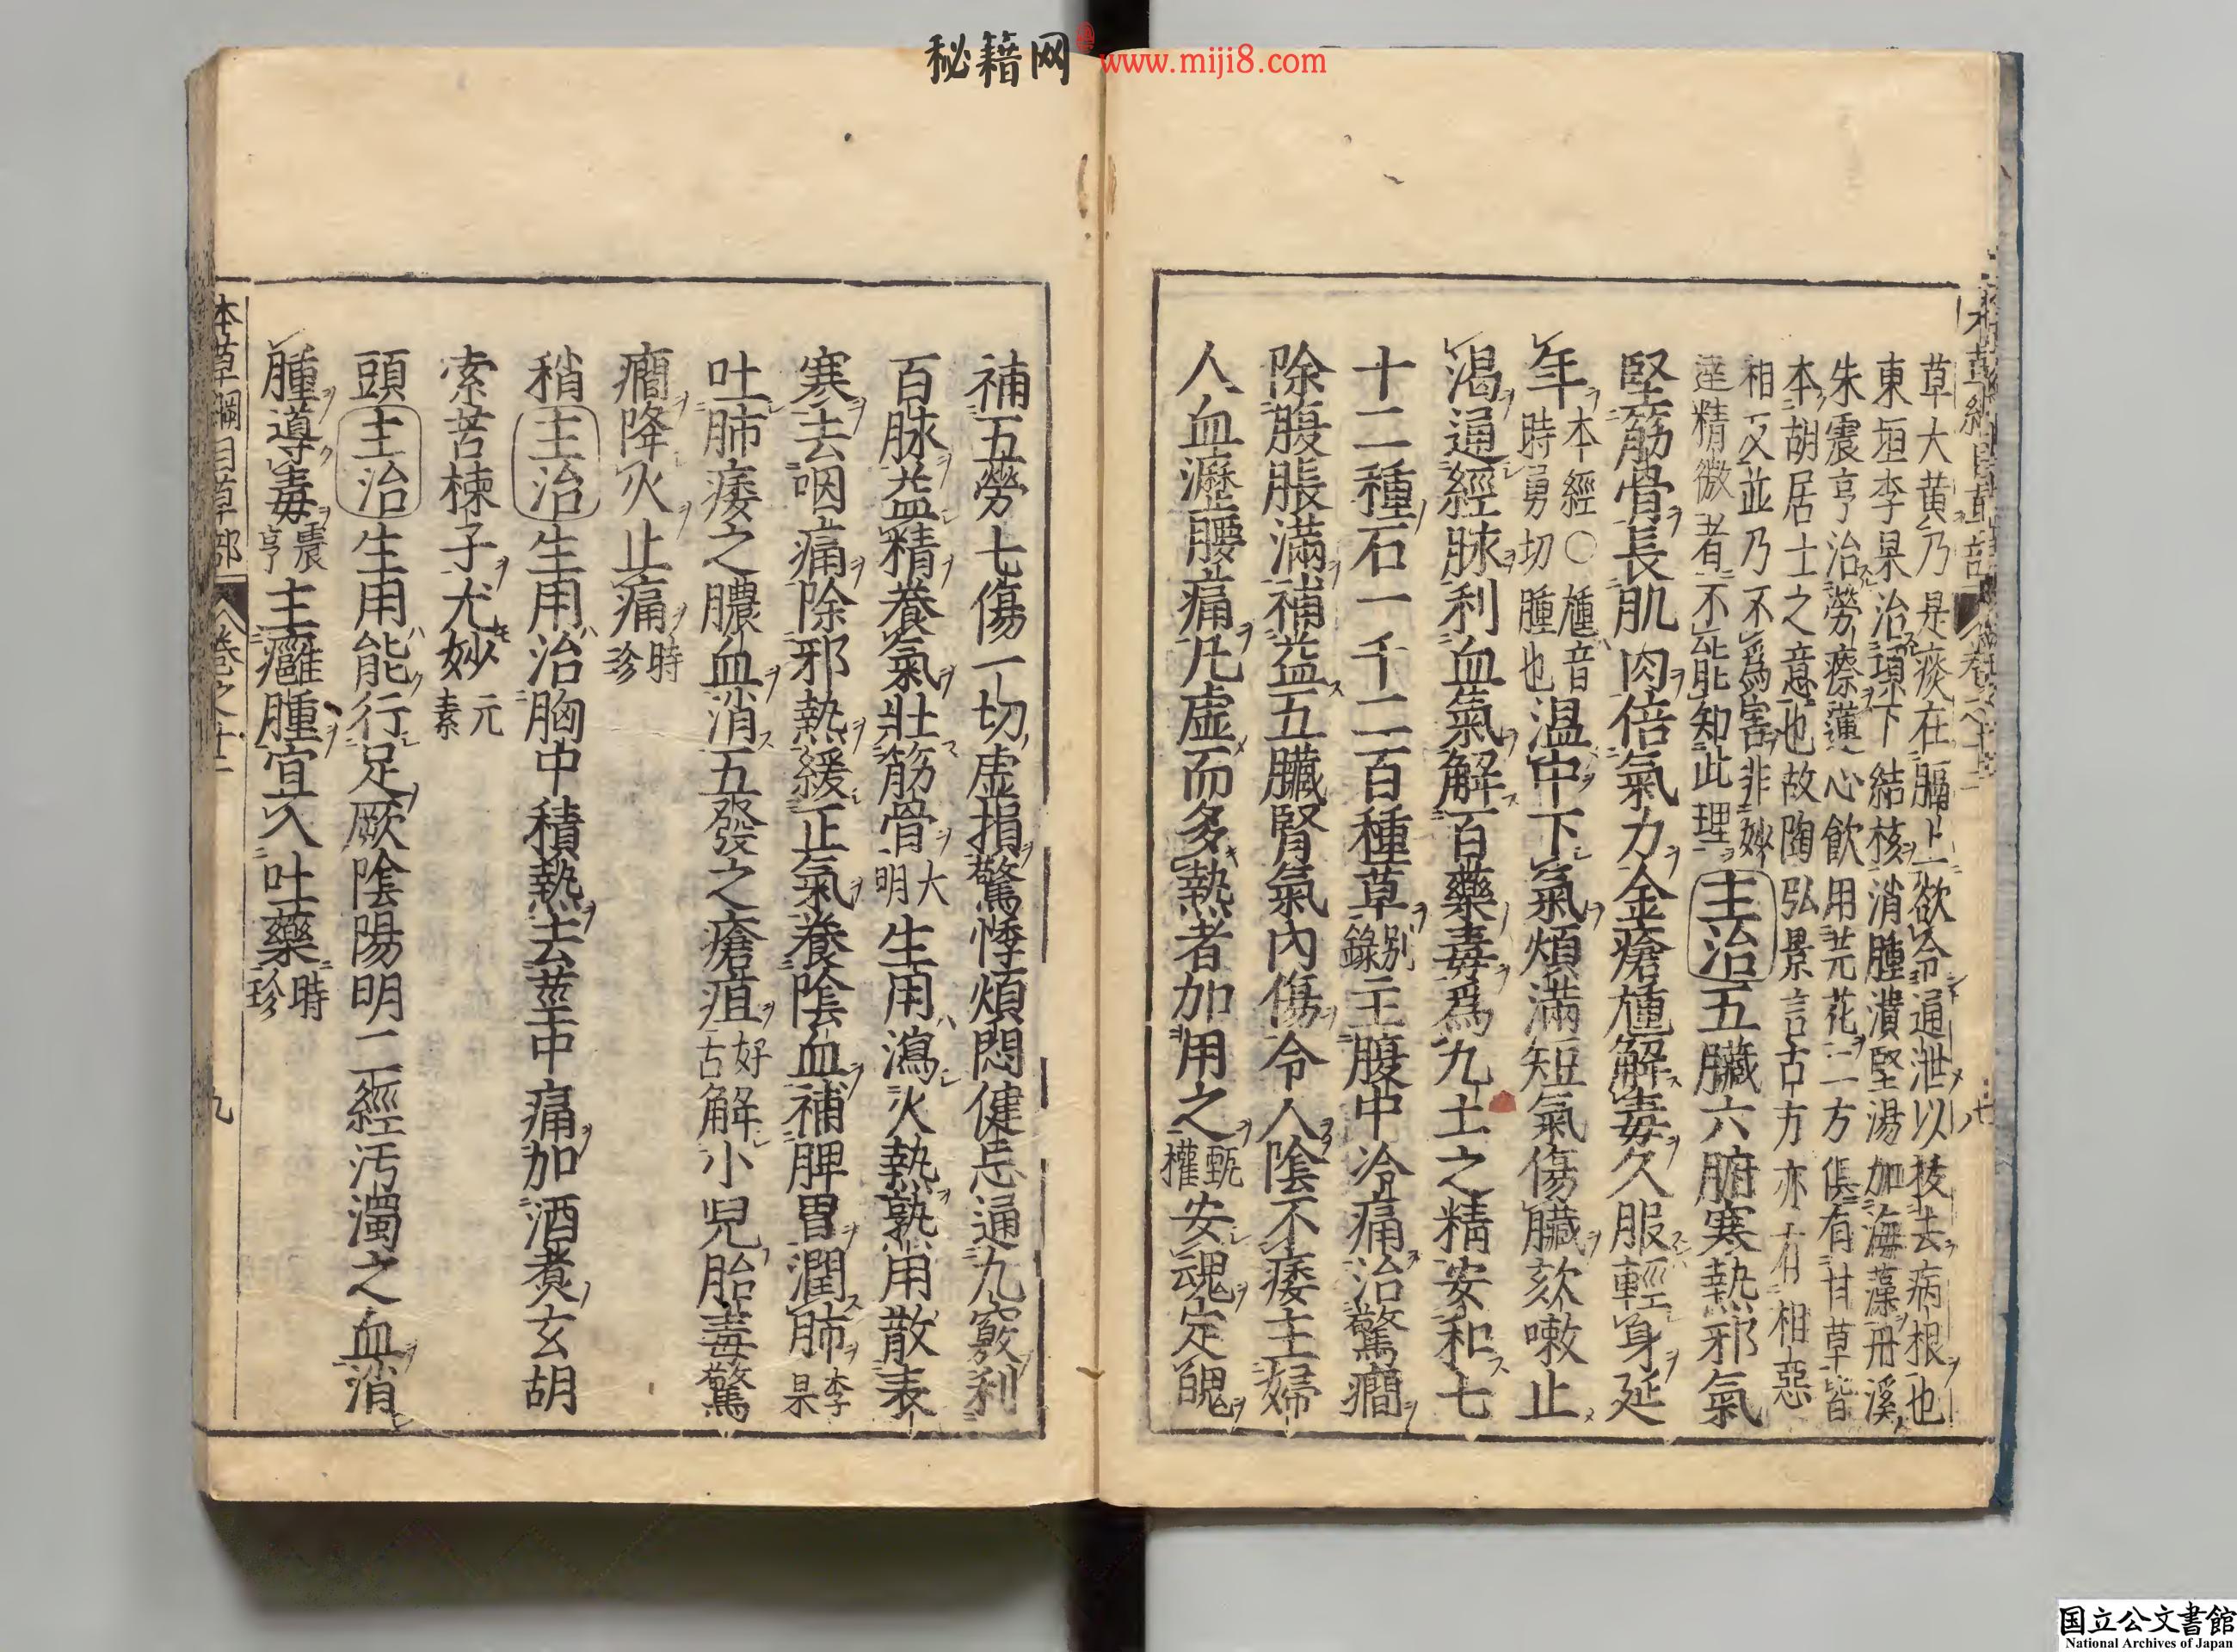 秘籍网 www.miji8.com
草大黄乃是痰在膈上欲令通泄以拔去病根也
東垣李杲治瘰下結核消腫潰堅湯加海藻丹溪
朱震亨治癆瘵蓮心飲用芫花二方俱有甘草皆
本胡居士之意也故陶弘景言古方亦有相惡
相反並乃不爲害非妙
達精微者不能知此理 主治五臟六腑寒熱邪氣
堅筋骨長肌肉倍氣力金瘡尰解毒久服輕身延
年本經○尰音時勇切腫也温中下氣煩滿短氣傷臟欬嗽止
渴通經脉利血氣解百藥毒爲九土之精安和七
十二種石一千二百種草别錄主腹中冷痛治驚癇
除腹脹滿補益五臟腎氣內傷令人陰不痿主婦
人血瀝腰痛凡虛而多熱者加用之甄權安魂定魄
補五勞七傷一切虛損驚悸煩悶健忘通九竅利
百脉益精養氣壯筋骨大明生用瀉火熱熟用散表
寒去咽痛除邪熱緩正氣養陰血補脾胃潤肺李杲
吐肺痿之膿血消五發之瘡疽好古解小兒胎毒驚
癇降火止痛時珍
稍主治生用治胸中積熱去莖中痛加酒煮玄胡
索苦楝子尤妙元素
頭主治生用能行足厥陰陽明二經汚濁之血消
腫導毒震亨主癰腫宜入吐藥時珍
本草綱目草部 卷之十二 九
国立公文書館
National Archives of Japan